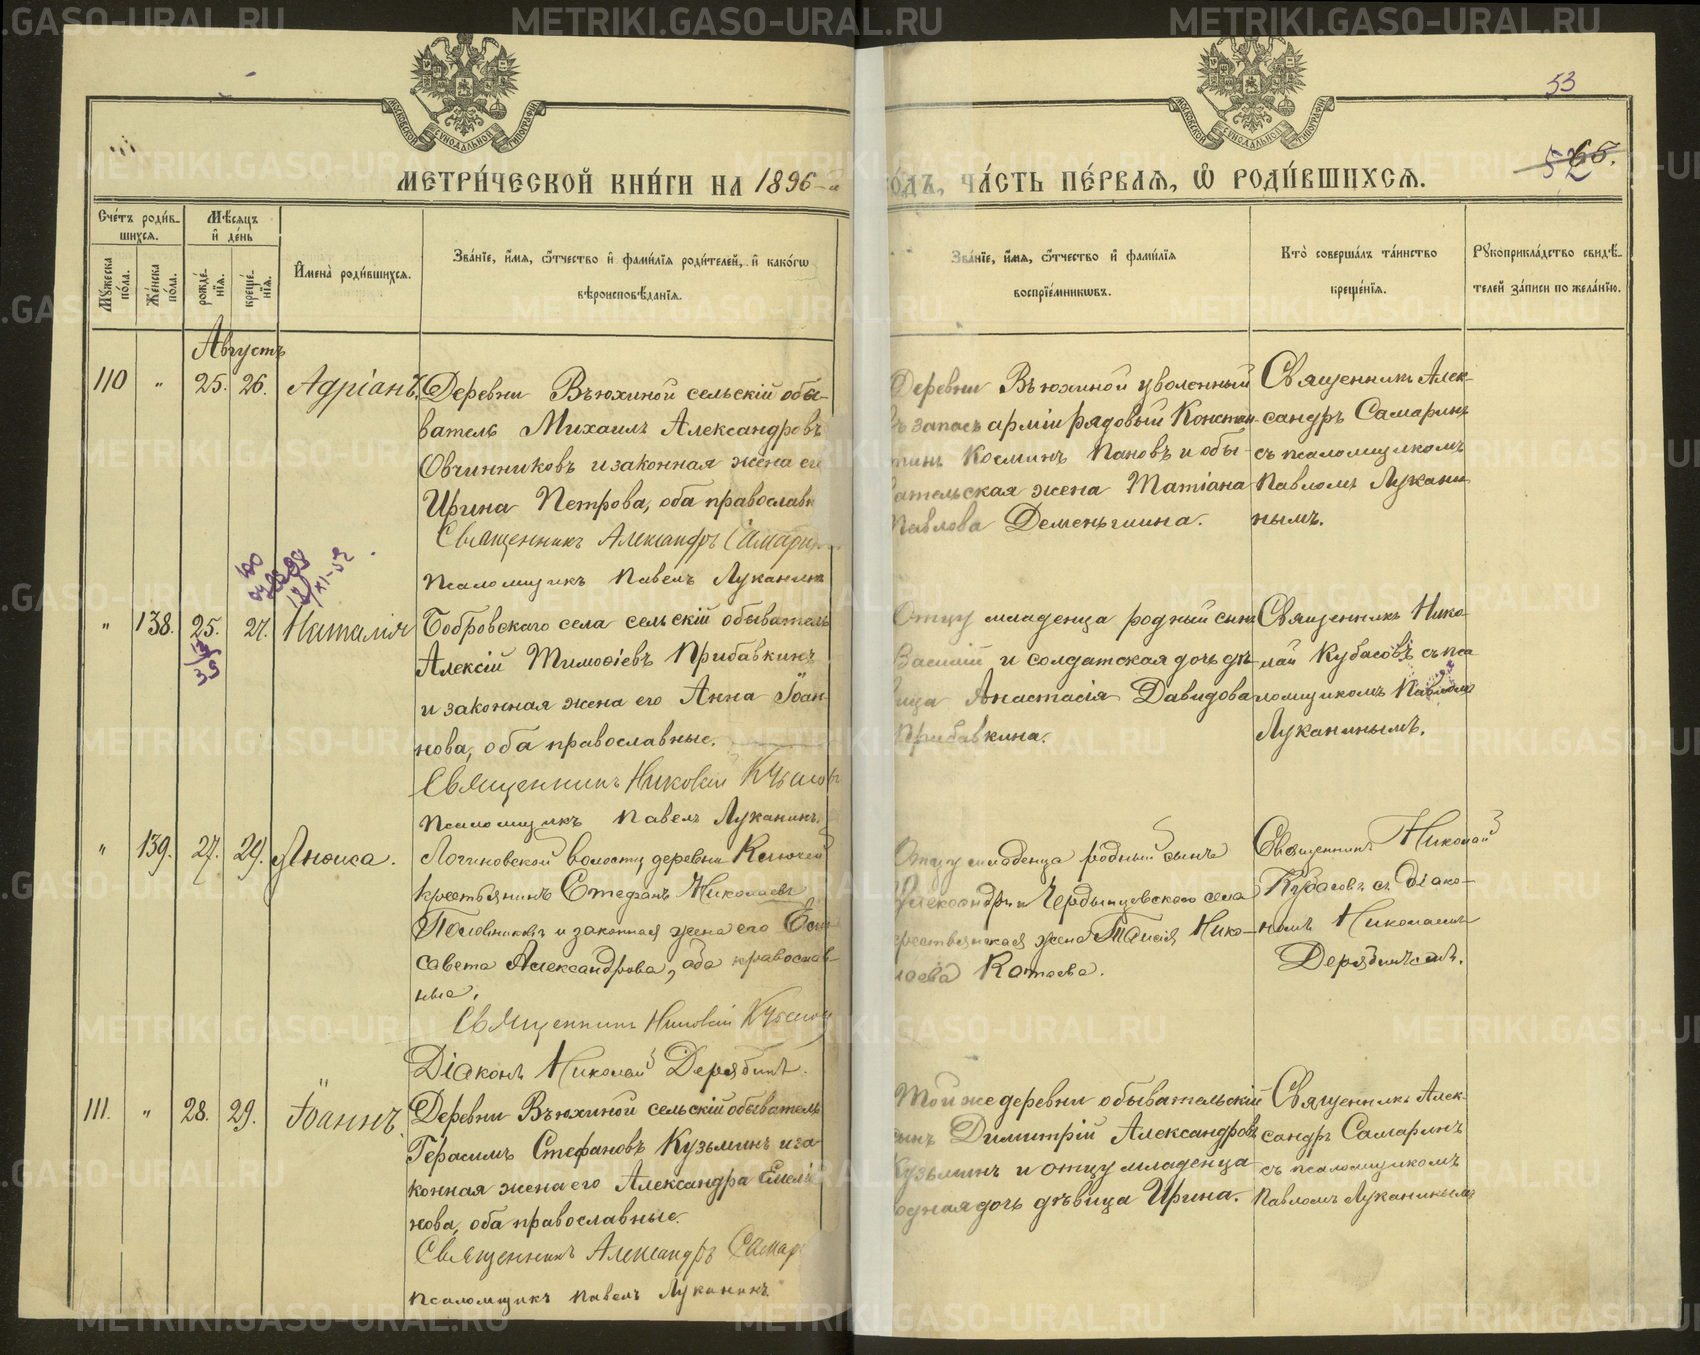 53
52 65.
МОСКОВСКОЙ СѴНОДАЛЬНОЙ ТИПОГРАФІИ
МОСКОВСКОЙ СѴНОДАЛЬНОЙ ТИПОГРАФІИ
МЕТРИ́ЧЕСКОЙ КНИ́ГИ НА 1896-й
ГО́ДЪ, ЧА́СТЬ ПЕ́РВАѦ, Ѡ҆ РОДИ́ВШИХСѦ.
Сче́тъ роди́в-
шихсѧ.
Мꙋ́жеска по́ла.
Же́нска по́ла.
Мѣ́сѧцъ
и҆ де́нь
рожде́-
нїѧ.
креще́-
нїѧ.
И҆мена̀ роди́вшихсѧ.
Зва́нїе, и҆́мѧ, ѻ҆́тчество и҆ фами́лїѧ роди́телей, и҆ како́гѡ
вѣроисповѣ́данїѧ.
Зва́нїе, и҆́мѧ, ѻ҆́тчество и҆ фами́лїѧ
воспрїе́мникѡвъ.
Кто̀ соверша́лъ та́инство
креще́нїѧ.
Рꙋкоприкла́дство свидѣ́-
телей за́писи по жела́нїю.
Августъ
110 " 25. 26. Адріанъ.
Деревни Вьюхиной сельскій обы-
ватель Михаилъ Александровъ
Овчинниковъ и законная жена его
Ирина Петрова, оба православн
Священникъ Александръ Самарин
Псаломщикъ Павелъ Луканинъ
Деревни Вьюхиной уволенный
въ запасъ арміи рядовый Констан-
тинъ Косминъ Пановъ и обы-
вательская жена Татіана
Павлова Деменьшина.
Священникъ Алек-
сандръ Самаринъ
съ псаломщикомъ
Павломъ Лукани
нымъ.
" 138. 25. 27. Наталія
Бобровскаго села сельскій обыватель
Алексій Тимоѳіевъ Прибавкинъ
и законная жена его Анна Іоан-
нова, оба православные.
Священникъ Николай Кубасовъ
Псаломщикъ Павелъ Луканинъ.
Отцу младенца родный сынъ
Василій и солдатская дочь дѣ-
вица Анастасія Давидова
Прибавкина.
Священникъ Нико-
лай Кубасовъ съ пса
ломщикомъ Павломъ
Луканинымъ.
" 139. 27. 29. Анѳиса.
Логиновской волости, деревни Ключей
крестьянинъ Стефанъ Николаевъ
Половниковъ и законная жена его Ели-
савета Александрова, оба православ-
ные.
Священникъ Николай Кубасов
Діаконъ Николай Дерябинъ.
Отцу младенца родный сынъ
Александръ и Чердынцевскаго села
крестьянская жена Таисія Нико-
лаева Котова.
Священникъ Николай
Кубасовъ съ Діако-
номъ Николаемъ
Дерябинымъ.
111. " 28. 29. Іоаннъ.
Деревни Вьюхиной сельскій обыватель
Герасимъ Стефановъ Кузьминъ и за-
конная жена его Александра Емелі
нова, оба православные.
Священникъ Александръ Самар
Псаломщикъ Павелъ Луканинъ
Той же деревни обывательскій
сынъ Димитрій Александровъ
Кузьминъ и отцу младенца
родная дочь дѣвица Ирина.
Священникъ Алек-
сандръ Самаринъ
съ псаломщикомъ
Павломъ Луканинымъ
METRIKI.GASO-URAL.RU